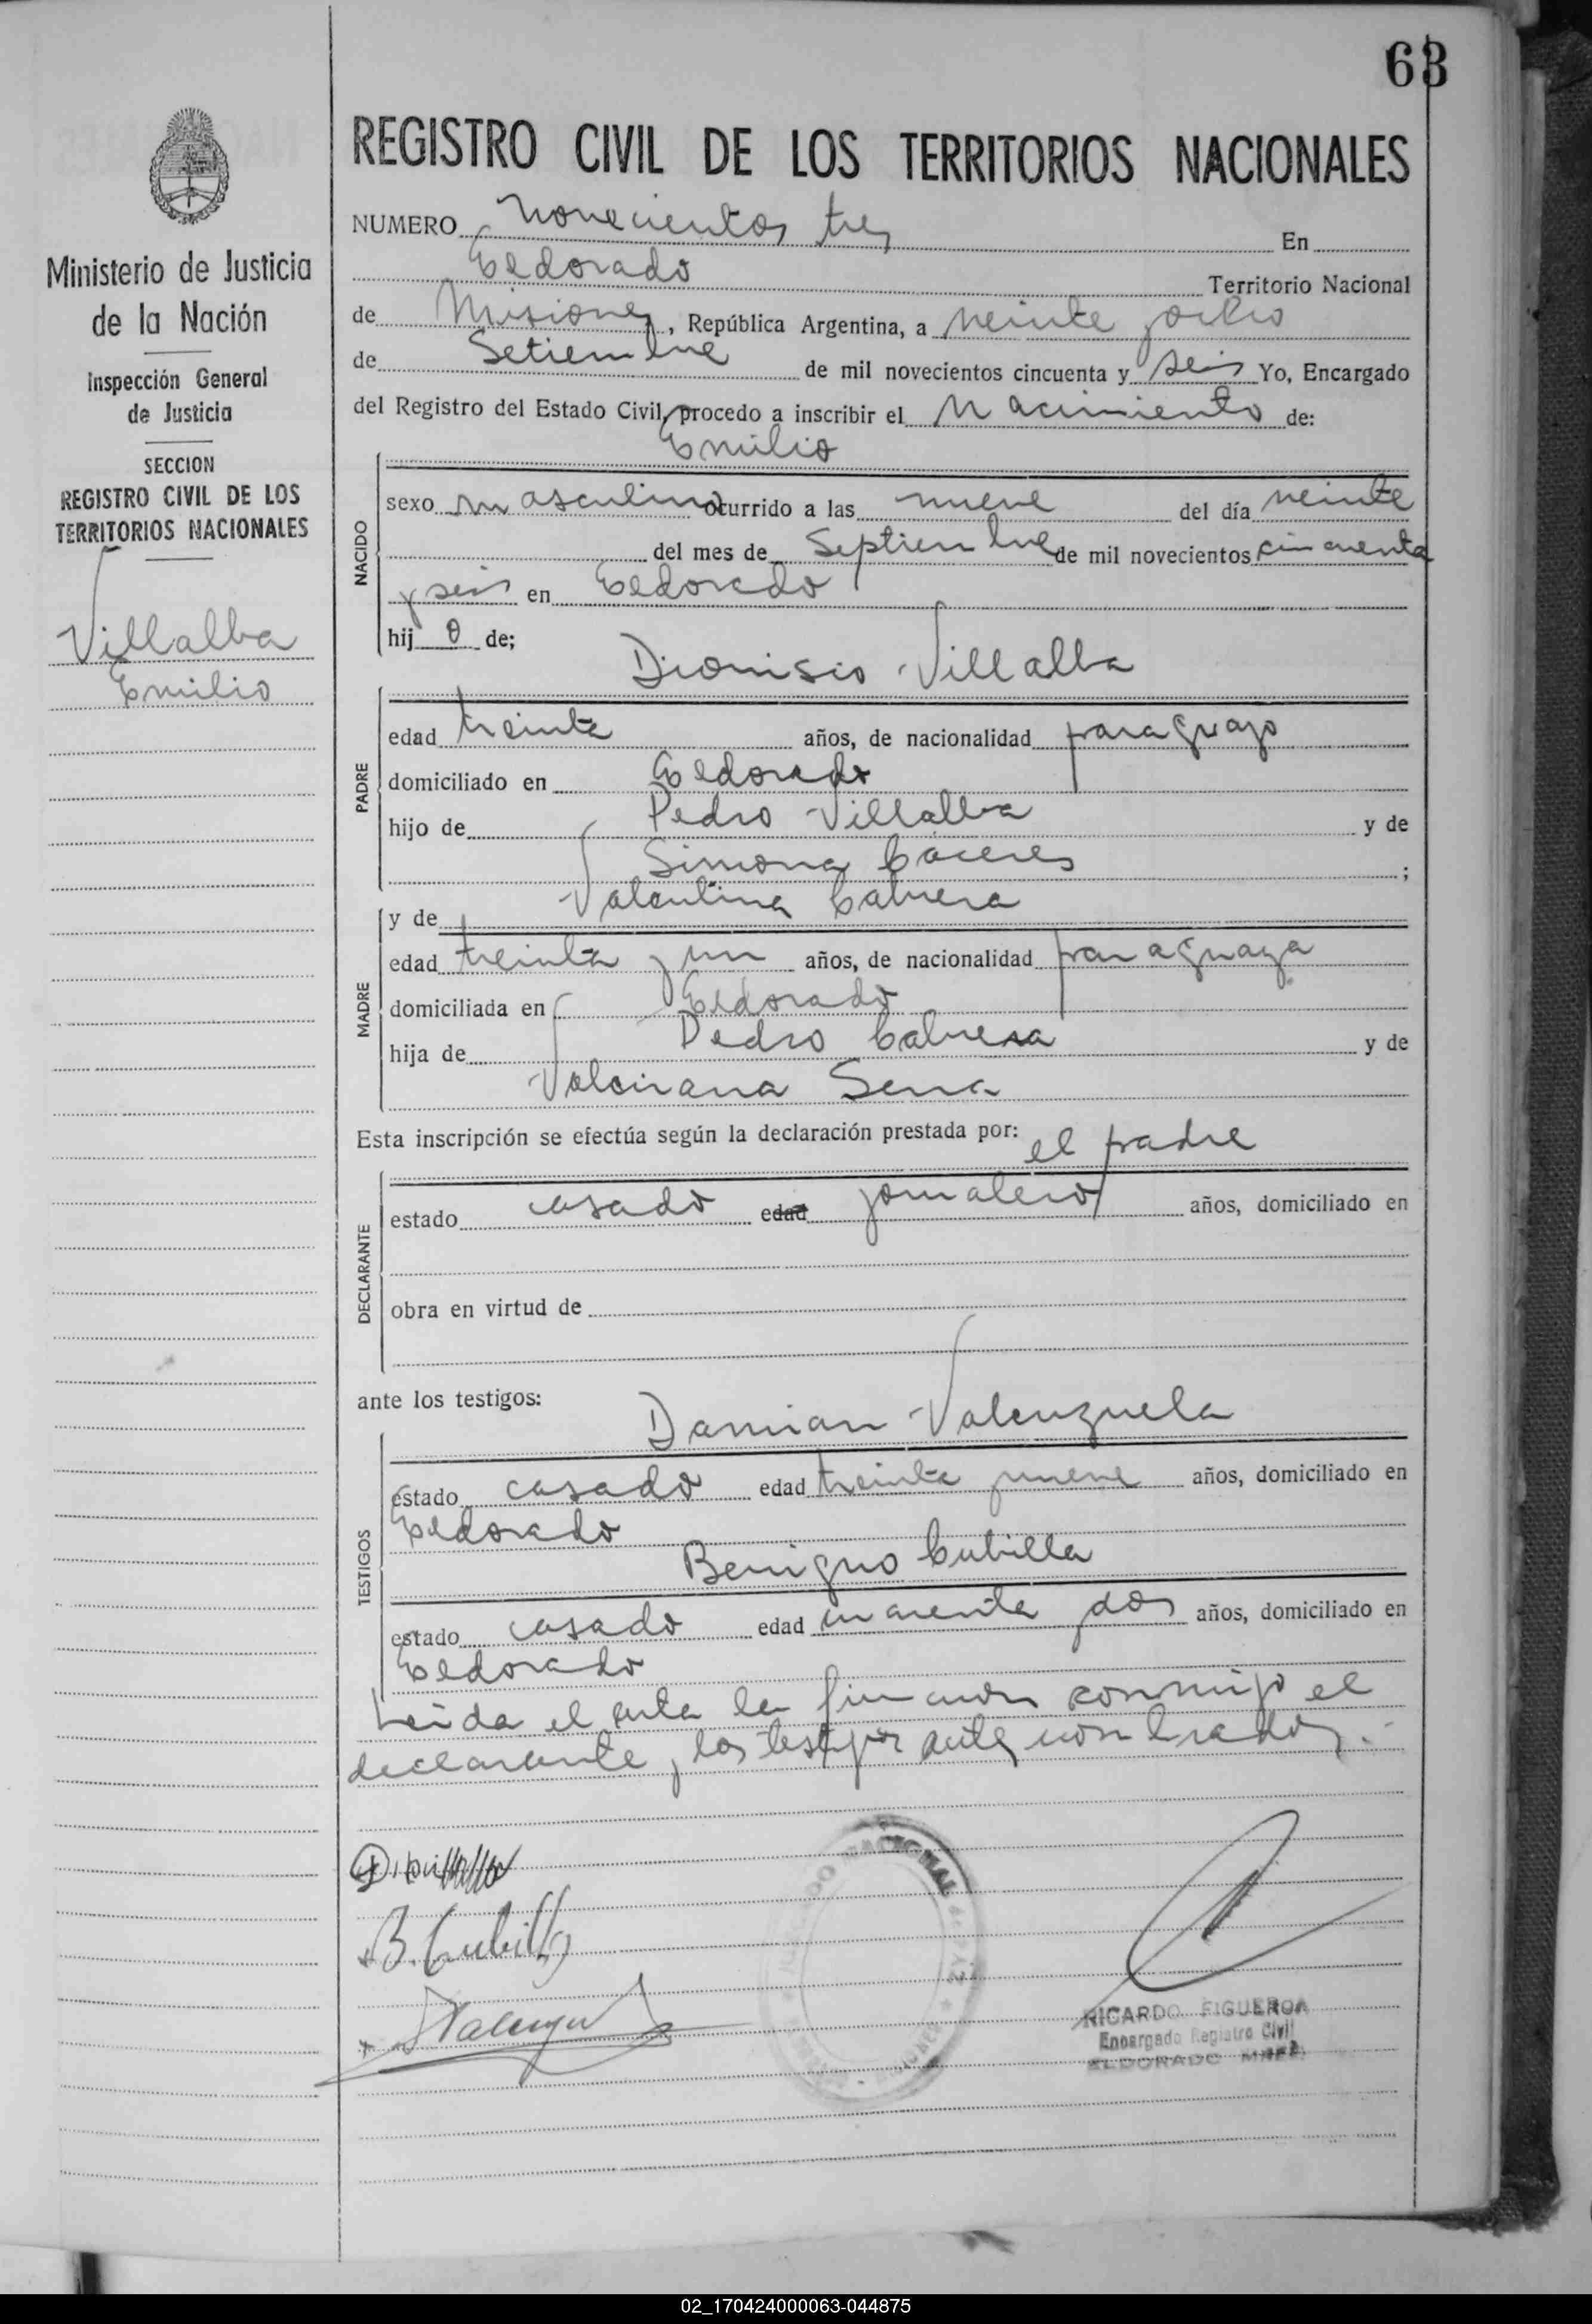 63
REGISTRO CIVIL DE LOS TERRITORIOS NACIONALES
Ministerio de Justicia
de la Nación
Inspección General
de Justicia
SECCION
REGISTRO CIVIL DE LOS
TERRITORIOS NACIONALES
Villalba
Emilio
NUMERO Novecientos tres En
Eldorado Territorio Nacional
de Misiones, República Argentina, a veinte yocho
de Setiembre de mil novecientos cincuenta y seis Yo, Encargado
del Registro del Estado Civil, procedo a inscribir el Nacimiento de:
Emilio
NACIDO
sexo masculino ocurrido a las nueve del día veinte
del mes de Septiembre de mil novecientos cincuenta
y seis en Eldorado
hij o de;
Dionisio Villalba
PADRE
edad treinta años, de nacionalidad paraguayo
domiciliado en Eldorado
hijo de Pedro Villalba y de
Simona Caceres ;
MADRE
y de Valentina Cabrera
edad treinta y un años, de nacionalidad paraguaya
domiciliada en Eldorado
hija de Pedro Cabrera y de
Serra
Esta inscripción se efectúa según la declaración prestada por:
el padre
DECLARANTE
estado casado edad jornalero años, domiciliado en
obra en virtud de
ante los testigos:
Damian Valenzuela
TESTIGOS
estado casado edad treinta ynueve años, domiciliado en
Eldorado
Benigno Cubilla
estado casado edad cuarenta y dos años, domiciliado en
Eldorado
Leida el acta la firmaron conmigo el
declarante y los testigos antes nombrados.-
B. Cubilla
RICARDO FIGUEROA
Encargado Registro Civil
ELDORADO
02_170424000063-044875